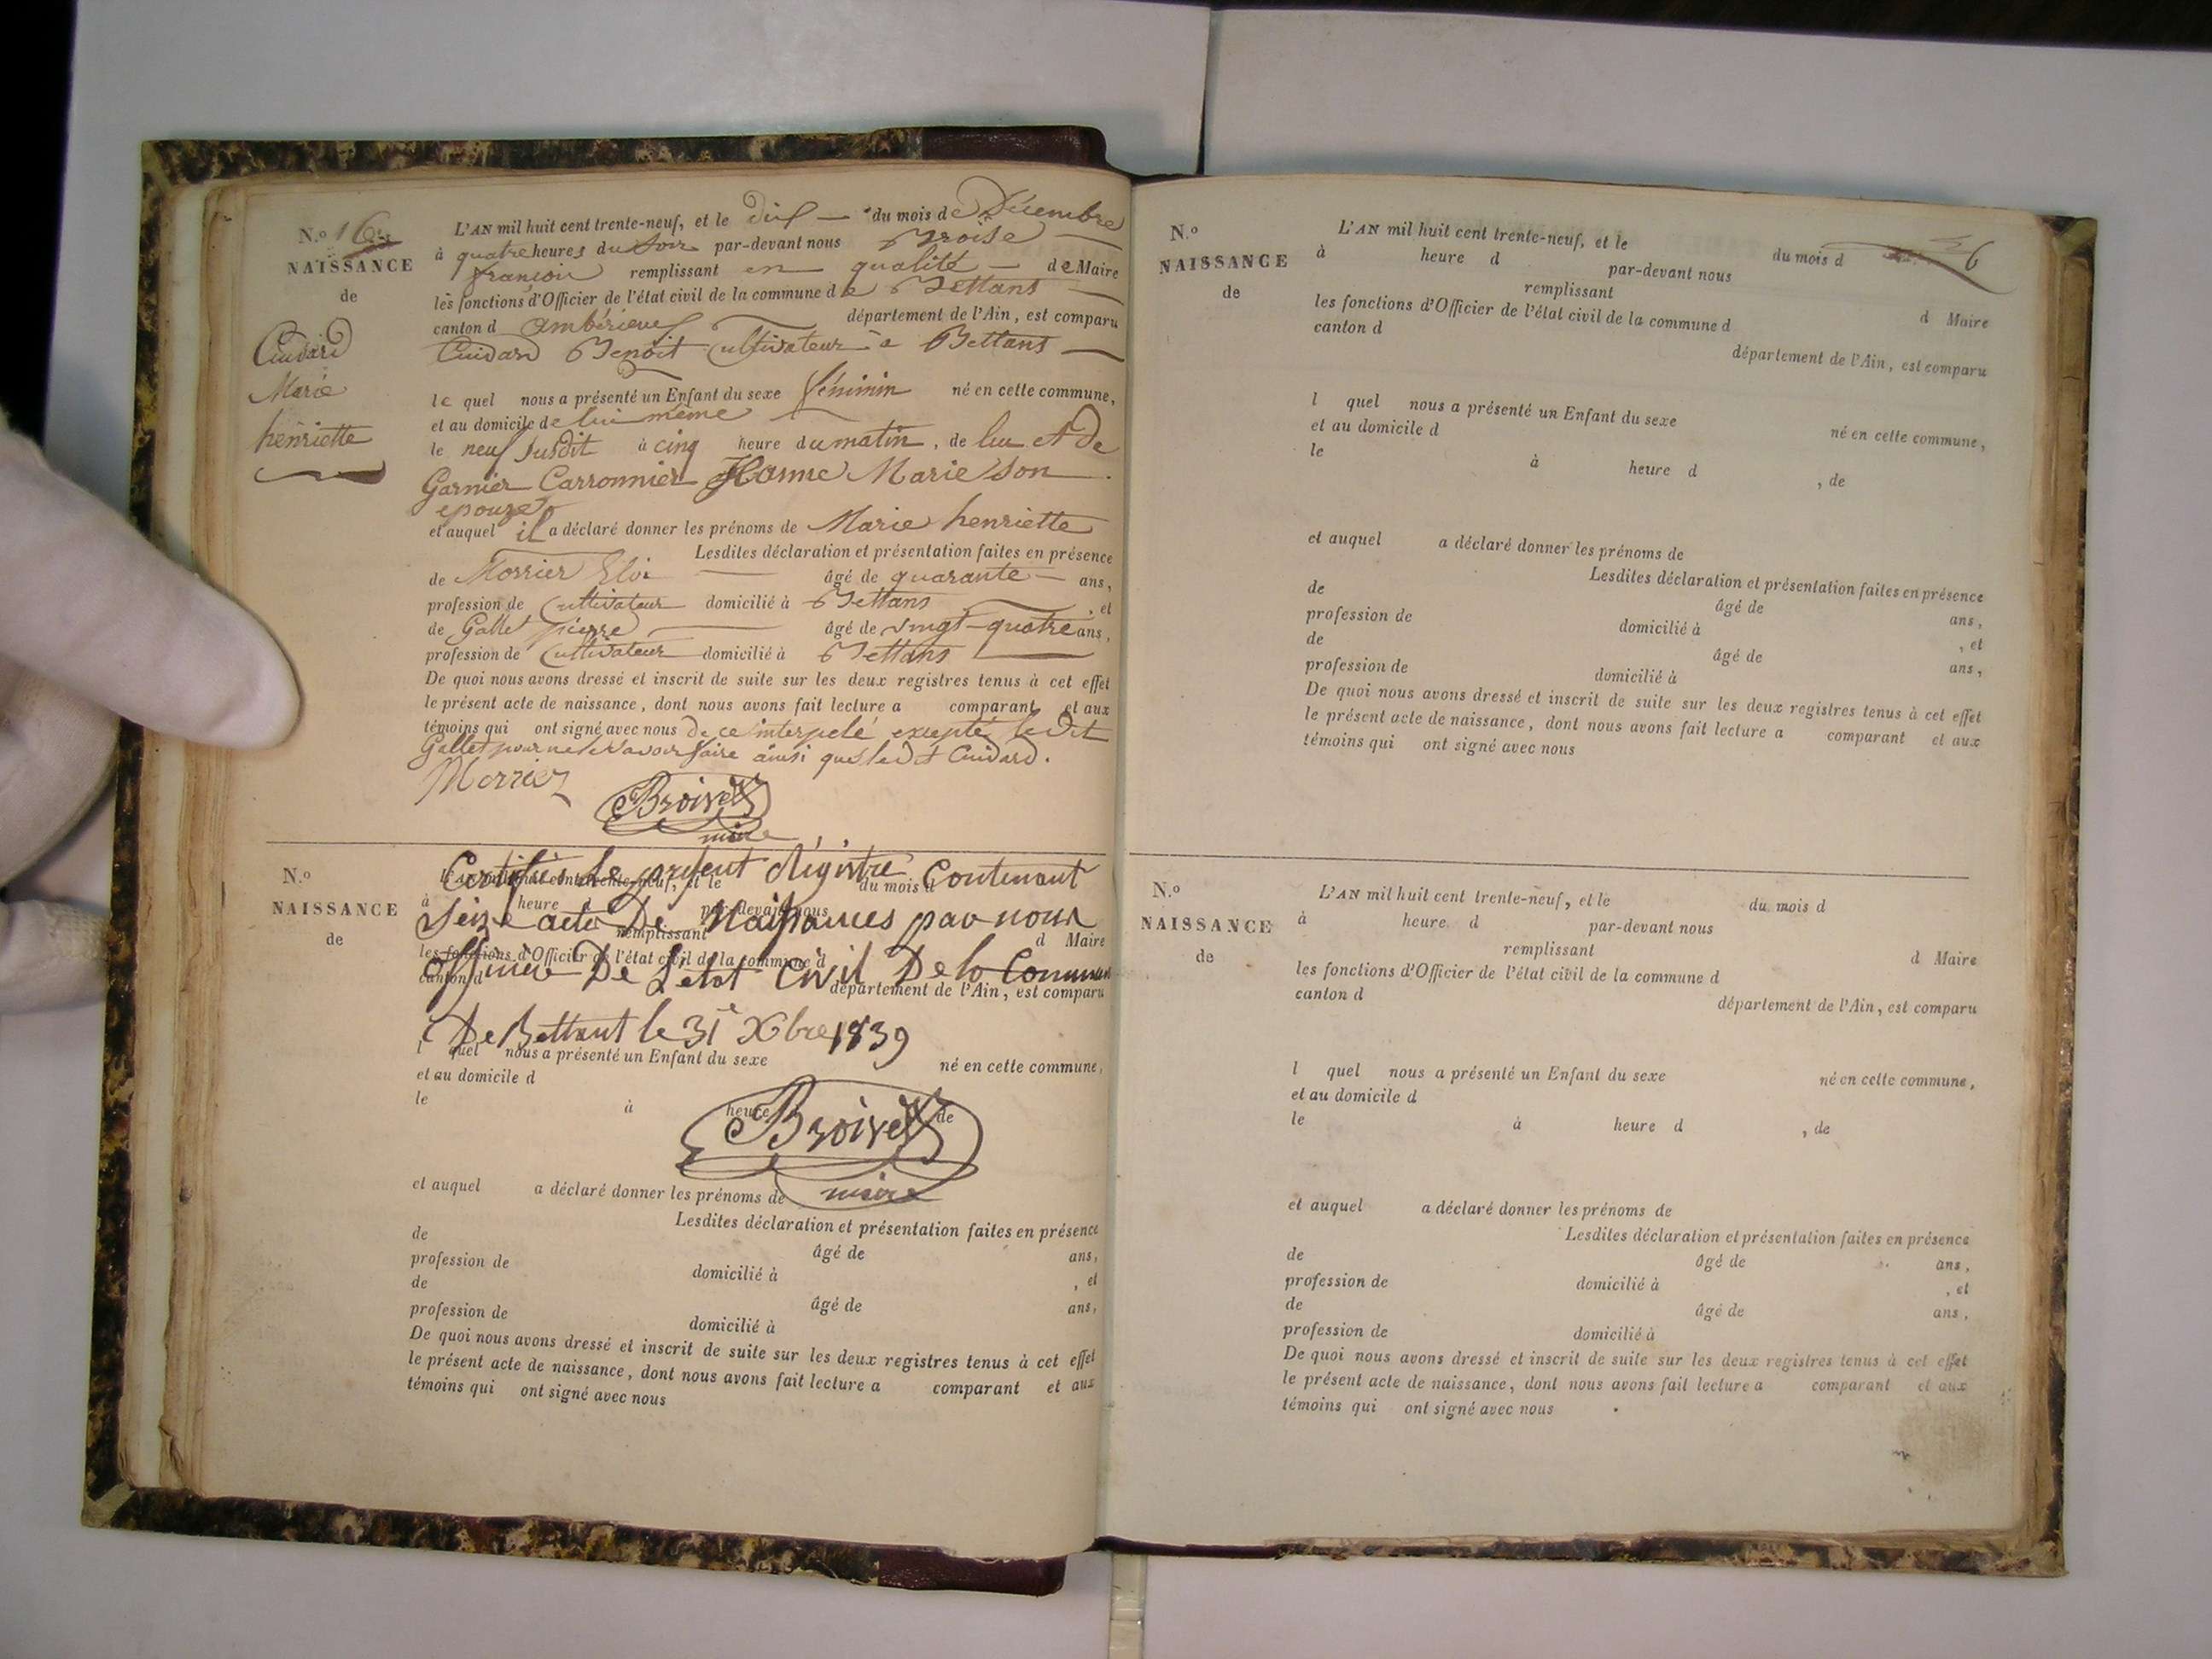 N.o 16
NAISSANCE
de
Cuidard
Marie
henriette
L'AN mil huit cent trente-neuf, et le dix du mois de Décembre
à quatre heures du Soir par-devant nous Broise
françois remplissant en qualité de Maire
les fonctions d'Officier de l'état civil de la commune de Bettans
canton d ambérieux département de l'Ain, est comparu
Cuidard Benoit Cultivateur à Bettans
le quel nous a présenté un Enfant du sexe féminin né en cette commune,
et au domicile de lui même
le neuf Susdit à cinq heure du matin, de lui et De
Garnier Carronnier Jeanne Marie Son
epouze
et auquel il a déclaré donner les prénoms de Marie henriette
Lesdites déclaration et présentation faites en présence
de Morrier Eloi âgé de quarante ans,
profession de Cultivateur domicilié à Bettans, et
de Gallet pierre âgé de vingt-quatre ans,
profession de Cultivateur domicilié à Bettans
De quoi nous avons dressé et inscrit de suite sur les deux registres tenus à cet effet
le présent acte de naissance, dont nous avons fait lecture a comparant et aux
témoins qui ont signé avec nous De ce interpelé excepté le Dit
Gallet pour ne le savoir faire ainsi que le Dit Cuidard.
Morrier
Broise
maire
N.o
NAISSANCE
de
L'AN mil huit cent trente-neuf, et le du mois d
à heure d par-devant nous
remplissant d Maire
les fonctions d'Officier de l'état civil de la commune d
canton d département de l'Ain, est comparu
Certifiés le présent Régistre Contenant
Seize acte De Naissances par nous
officier De L'etat Civil De la Commune
De Bettant le 31 Xbre 1839
l quel nous a présenté un Enfant du sexe né en cette commune,
et au domicile d
le à heure de
Broise
maire
et auquel a déclaré donner les prénoms de
Lesdites déclaration et présentation faites en présence
de âgé de ans,
profession de domicilié à , et
de âgé de ans,
profession de domicilié à
De quoi nous avons dressé et inscrit de suite sur les deux registres tenus à cet effet
le présent acte de naissance, dont nous avons fait lecture a comparant et aux
témoins qui ont signé avec nous
6
N.o
NAISSANCE
de
L'AN mil huit cent trente-neuf, et le du mois d
à heure d par-devant nous
remplissant d Maire
les fonctions d'Officier de l'état civil de la commune d
canton d département de l'Ain, est comparu
l quel nous a présenté un Enfant du sexe né en cette commune,
et au domicile d
le à heure d , de
et auquel a déclaré donner les prénoms de
Lesdites déclaration et présentation faites en présence
de âgé de ans,
profession de domicilié à , et
de âgé de ans,
profession de domicilié à
De quoi nous avons dressé et inscrit de suite sur les deux registres tenus à cet effet
le présent acte de naissance, dont nous avons fait lecture a comparant et aux
témoins qui ont signé avec nous
N.o
NAISSANCE
de
L'AN mil huit cent trente-neuf, et le du mois d
à heure d par-devant nous
remplissant d Maire
les fonctions d'Officier de l'état civil de la commune d
canton d département de l'Ain, est comparu
l quel nous a présenté un Enfant du sexe né en cette commune,
et au domicile d
le à heure d , de
et auquel a déclaré donner les prénoms de
Lesdites déclaration et présentation faites en présence
de âgé de ans,
profession de domicilié à , et
de âgé de ans,
profession de domicilié à
De quoi nous avons dressé et inscrit de suite sur les deux registres tenus à cet effet
le présent acte de naissance, dont nous avons fait lecture a comparant et aux
témoins qui ont signé avec nous